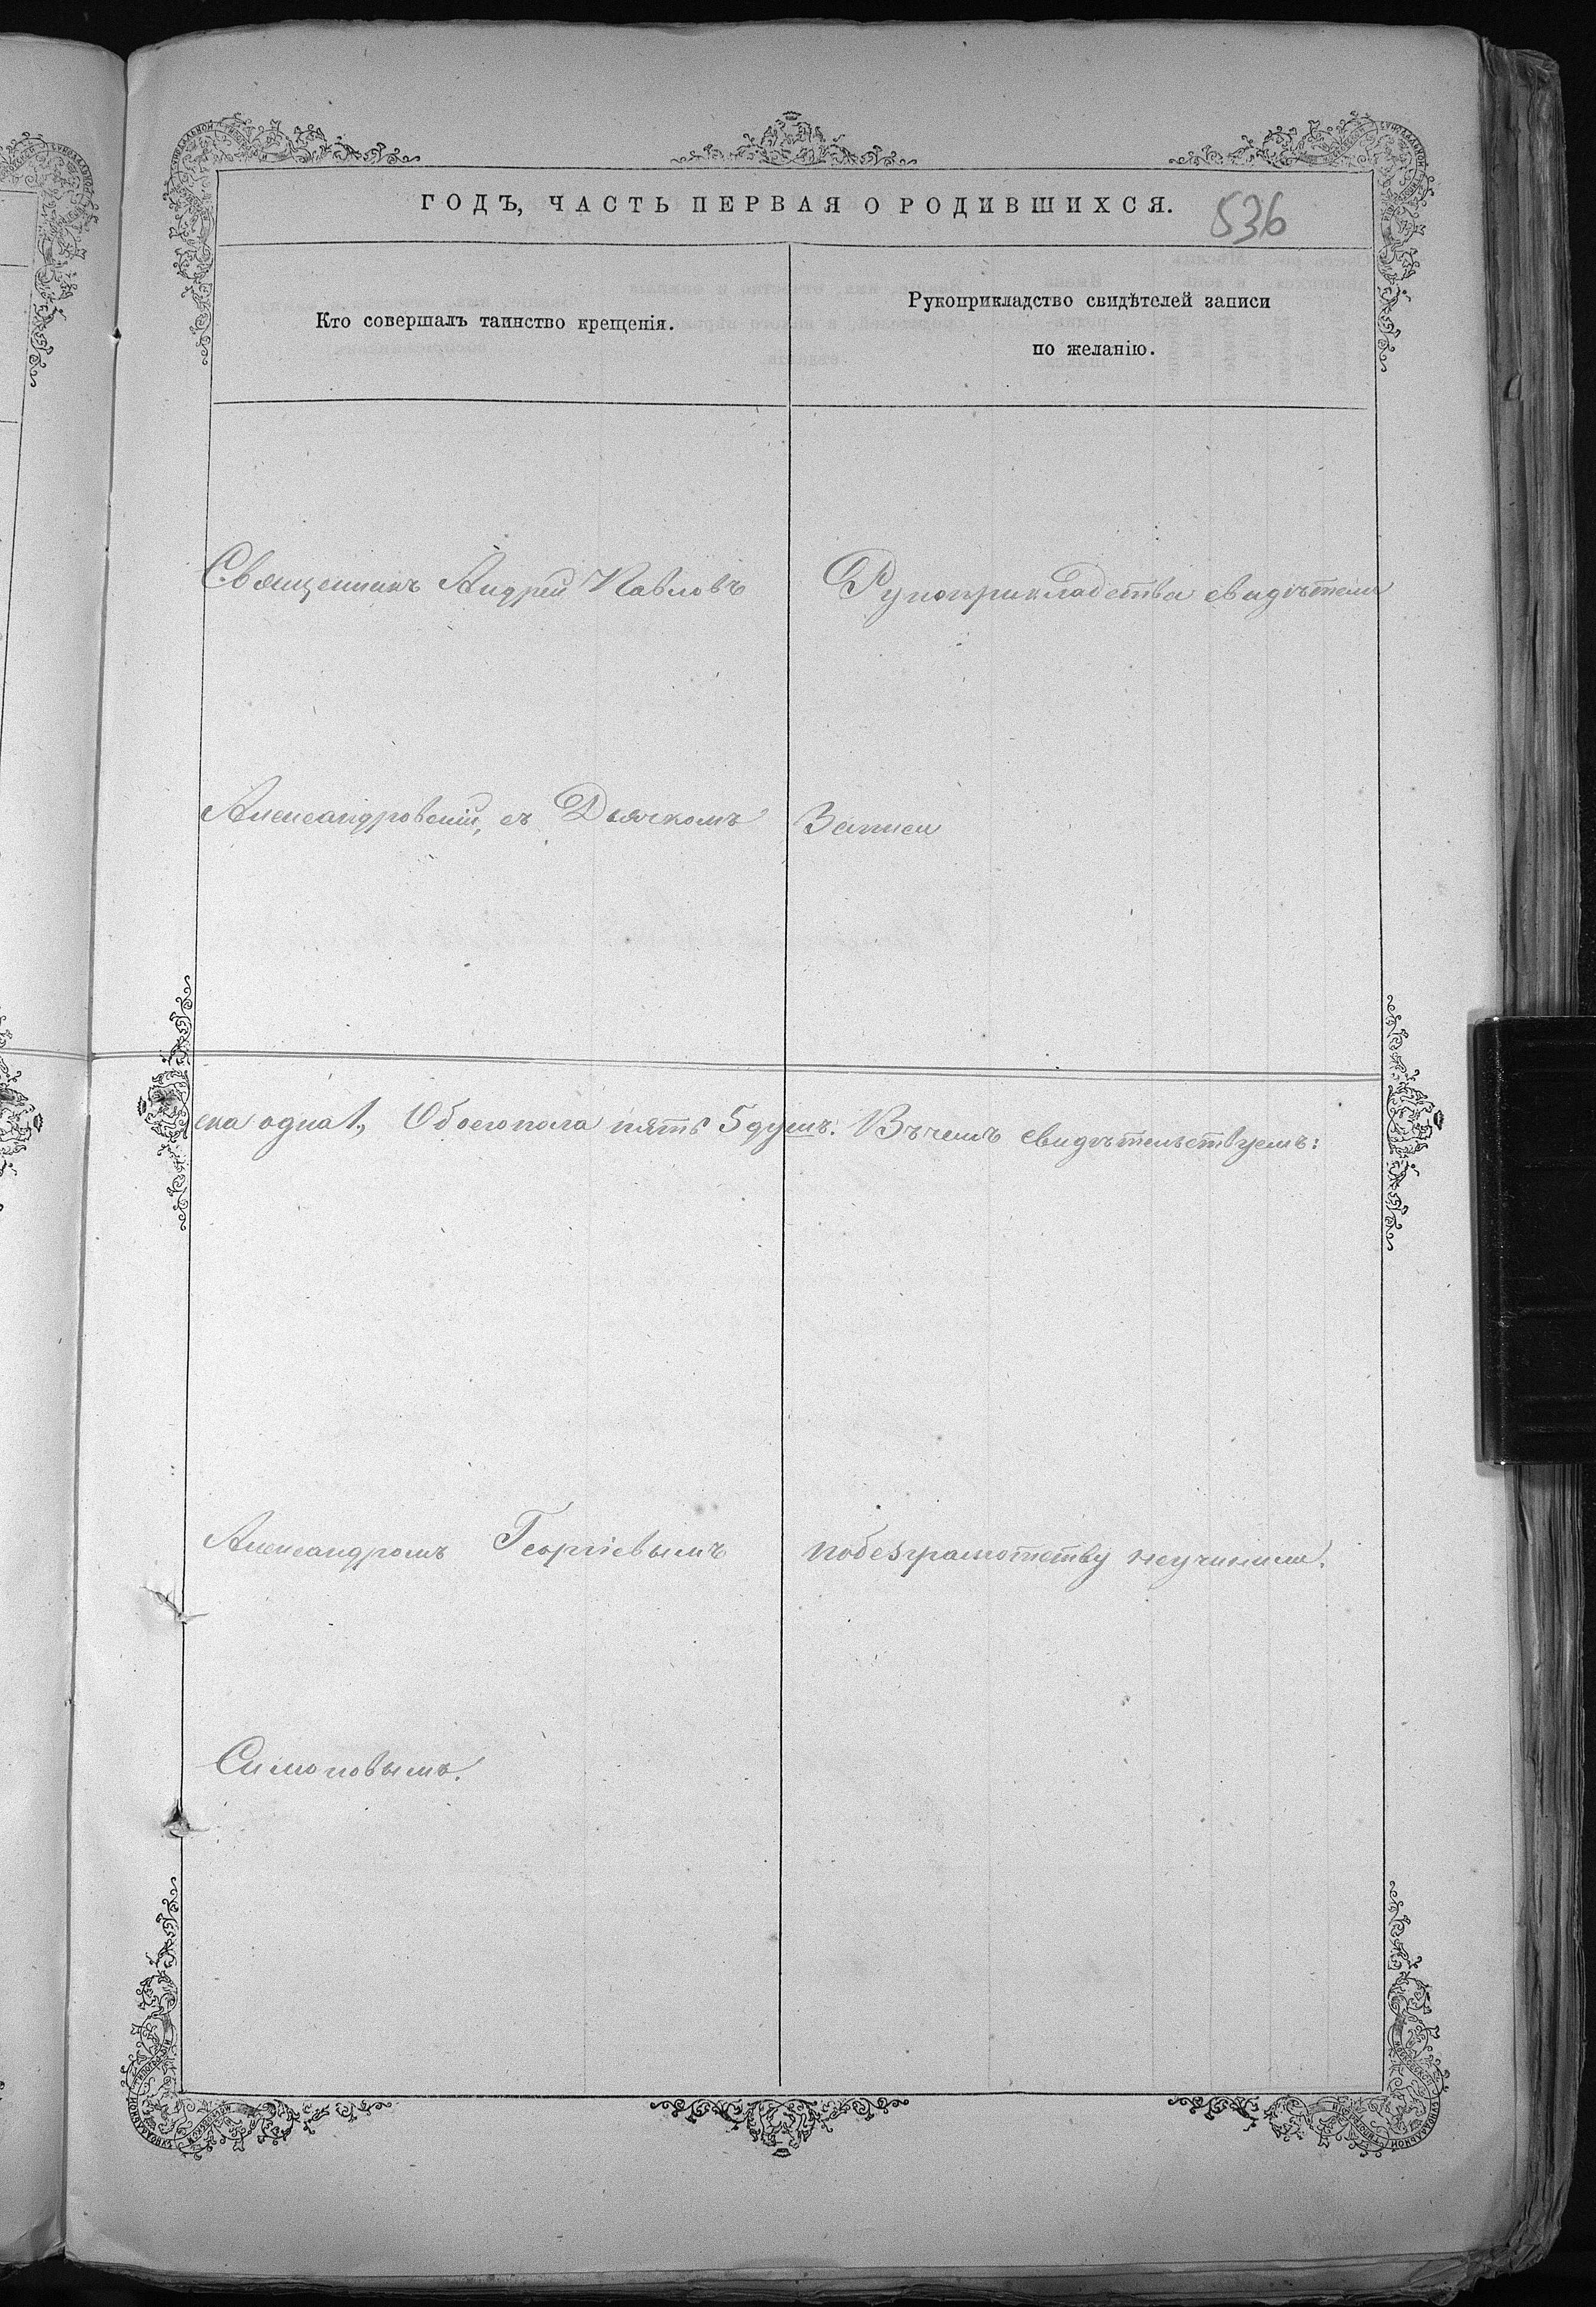 ГОДЪ, ЧАСТЬ ПЕРВАЯ О РОДИВШИХСЯ.
536
Кто совершалъ таинство крещенія.
Рукоприкладство свидѣтелей записи
по желанію.
Священникъ Андрей Павловъ
Рукоприкладства свидѣтели
Александровскій, съ Дьячкомъ
Записи
ска одна 1., Обоего пола пять 5 душъ. Въ чемъ свидѣтельствуемъ:
Александромъ Георгіевымъ
по безграмотству не учинили.
Симоновымъ.